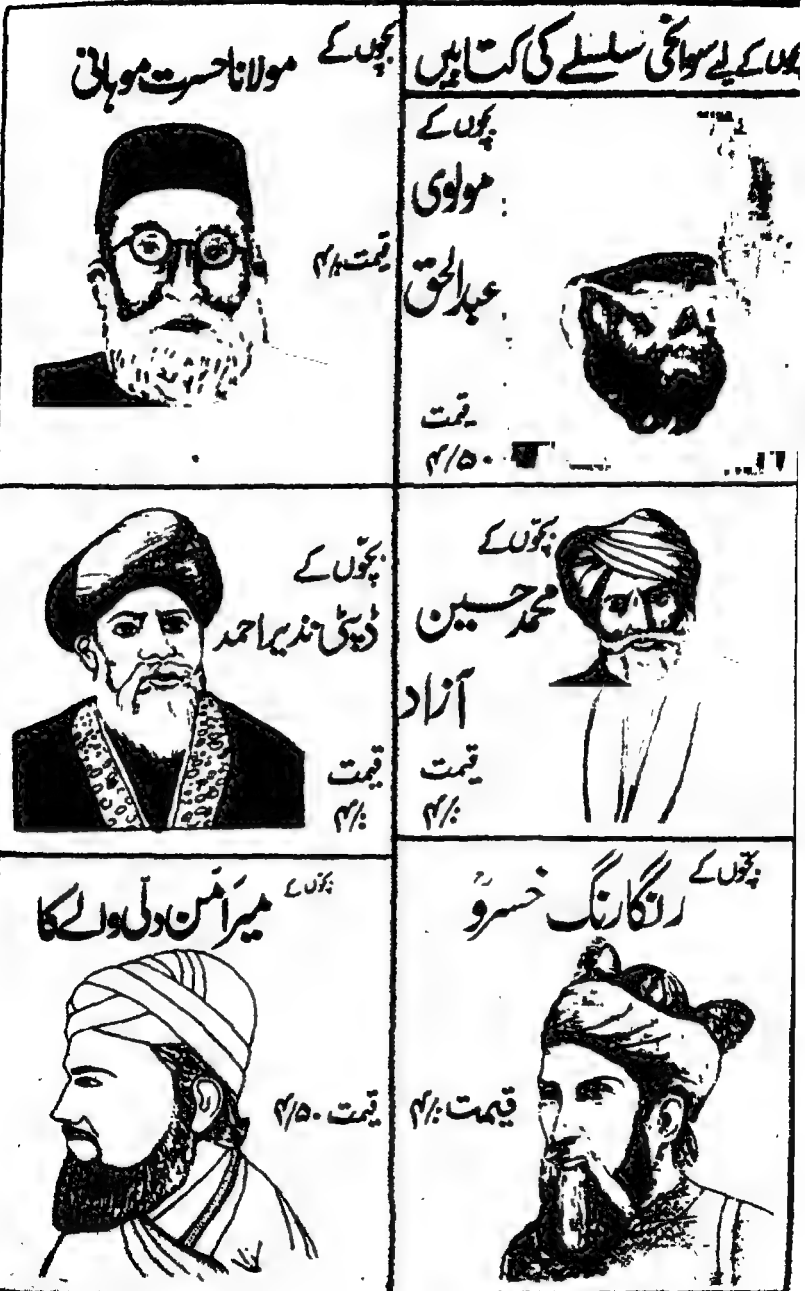 بچوں کے لیے سوانحی سلسلے کی کتابیں
بچوں کے
مولوی
عبدالحق
قیمت
۴/۵۰
بچوں کے
مولانا حسرت موہانی
قیمت ۴/:
بچوں کے
محمد حسین
آزاد
قیمت
۴/:
بچوں کے
ڈپٹی نذیر احمد
قیمت
۴/:
بچوں کے
رنگا رنگ خسروؒ
قیمت ۴/:
بچوں کے
میر امن دلی والے کا
قیمت ۴/۵۰